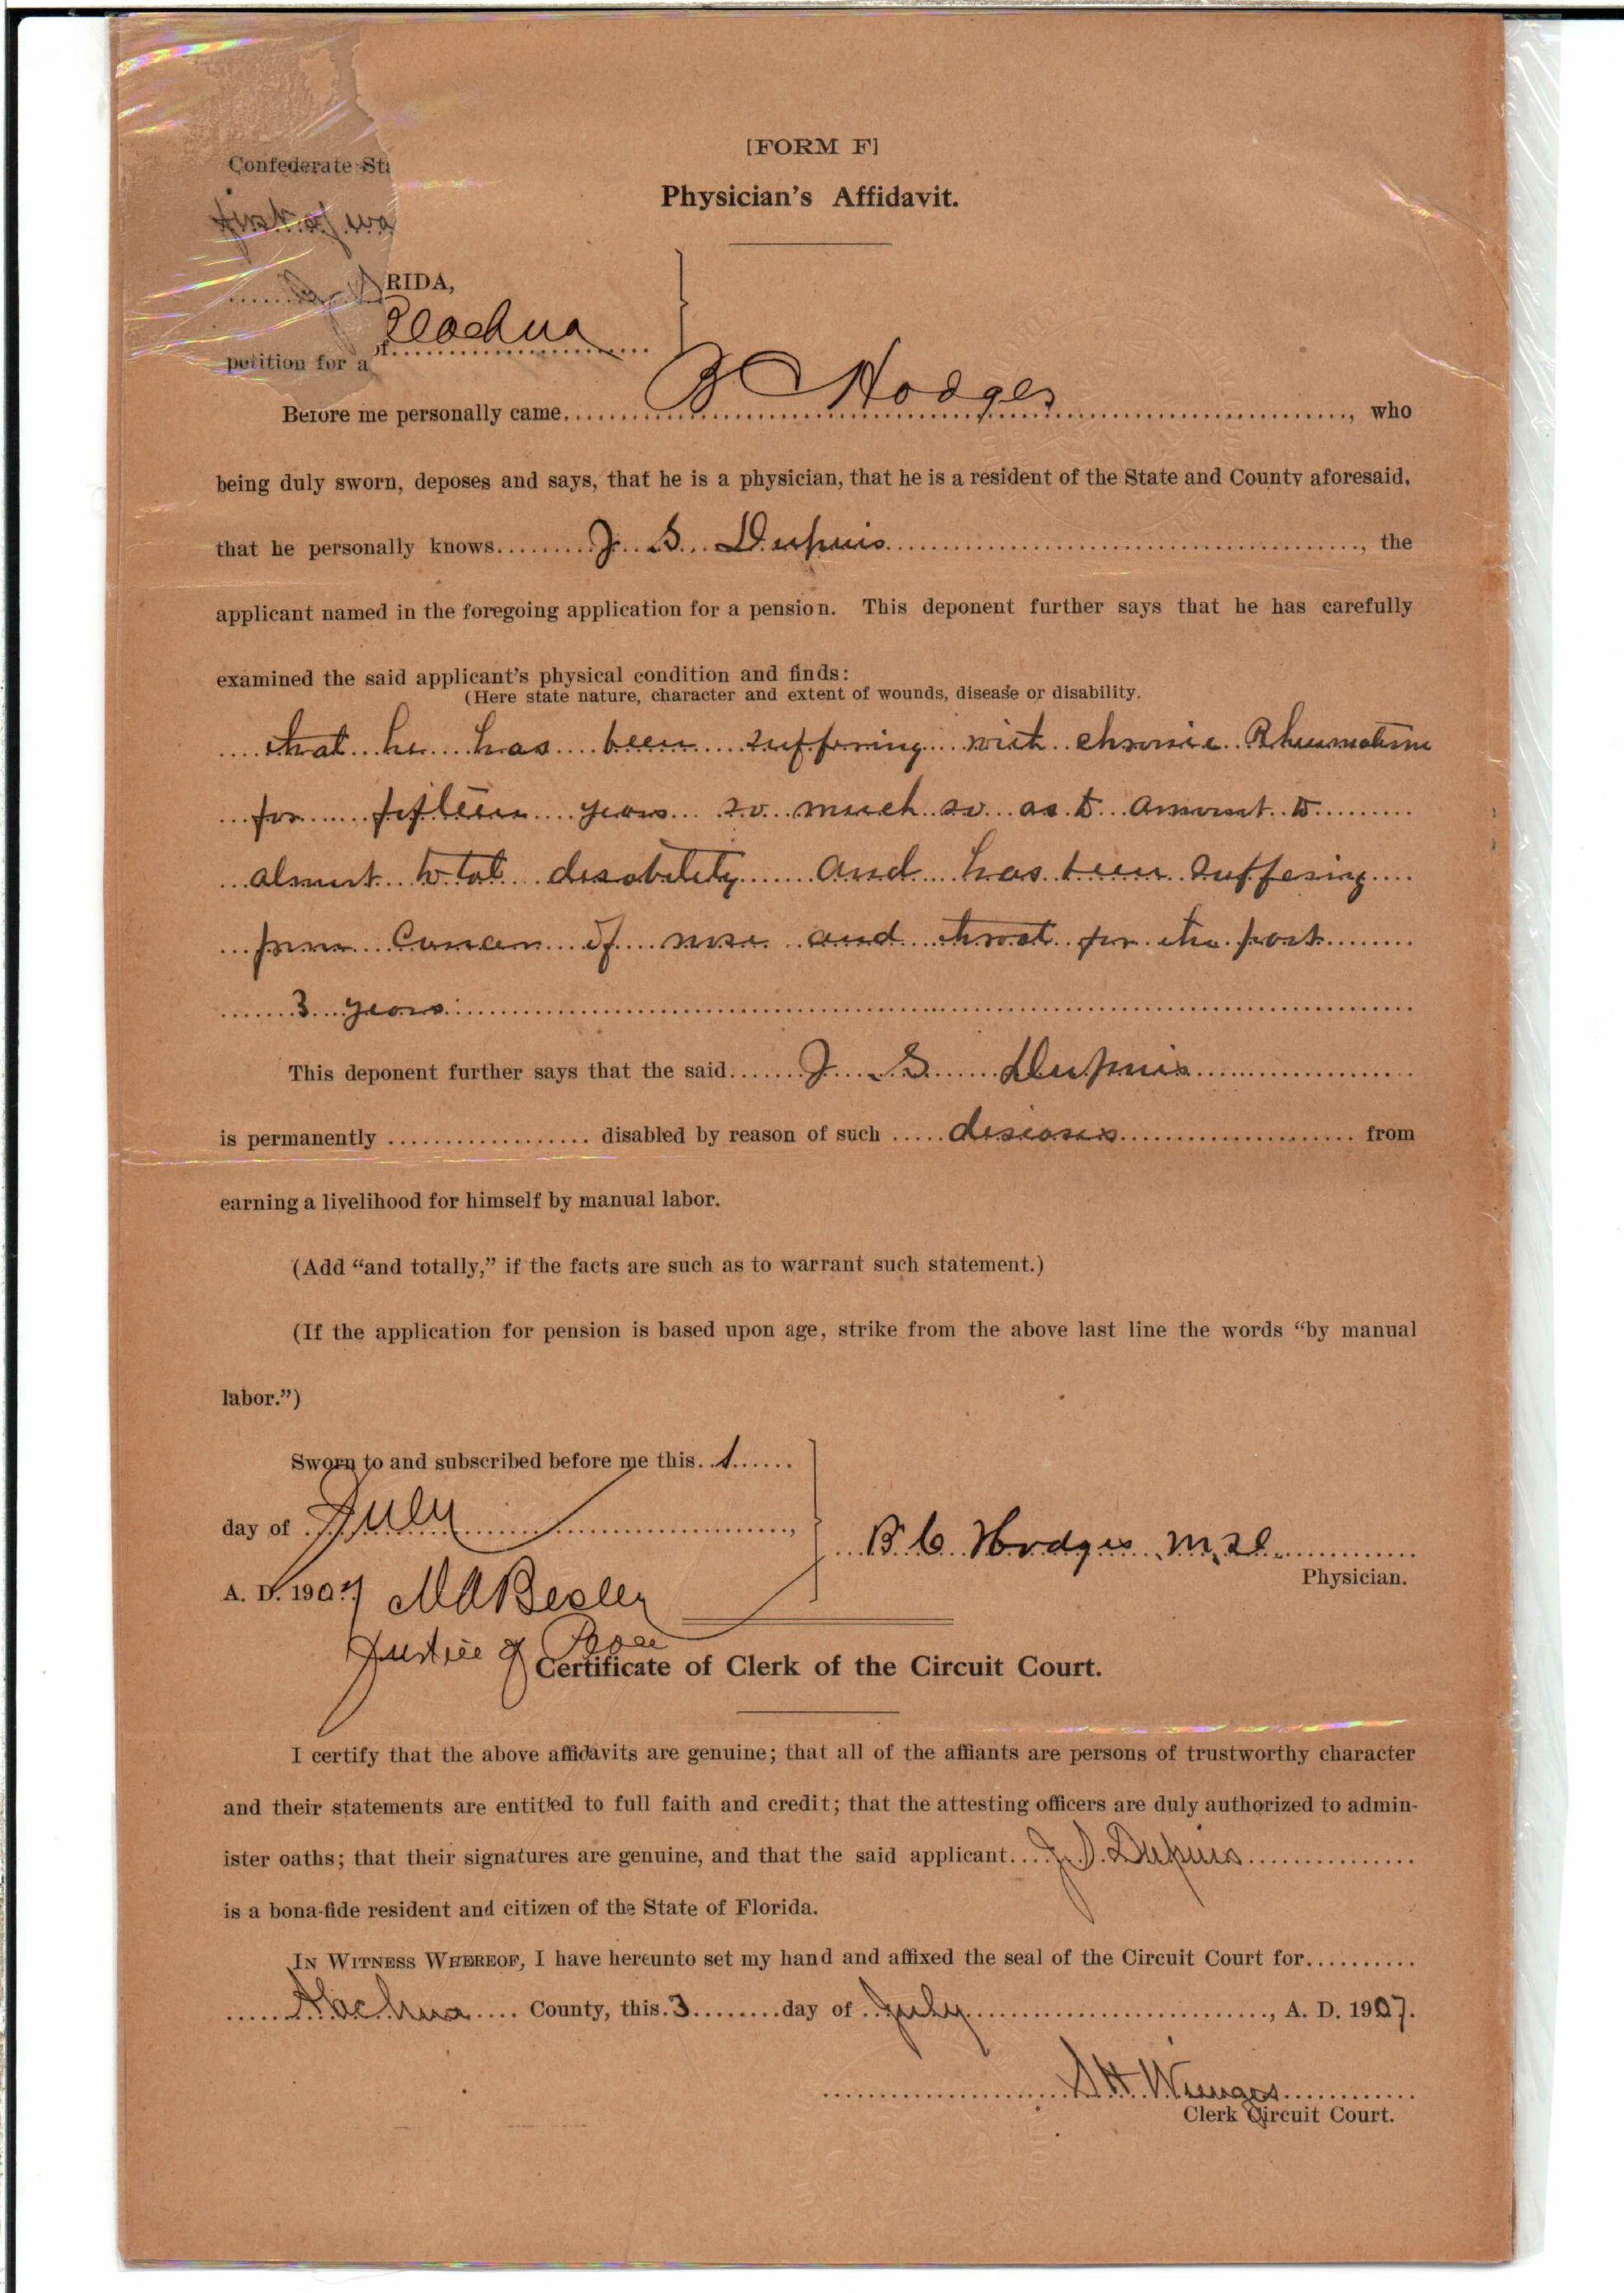 [FORM F]
Physician's Affidavit.
Confederate
RIDA,
petition for a
Before me personally came B C Hodges, who
being duly sworn, deposes and says, that he is a physician, that he is a resident of the State and County aforesaid,
that he personally knows J. S. Dupuis, the
applicant named in the foregoing application for a pension. This deponent further says that he has carefully
examined the said applicant's physical condition and finds:
(Here state nature, character and extent of wounds, disease or disability.
that he has been suffering with chronic Rheumatism
for fifteen years so much so as to amount to
almost total disability and has been suffering
from Cancer of nose and throat for the past
3 years
This deponent further says that the said J S Dupuis
is permanently disabled by reason of such diseases from
earning a livelihood for himself by manual labor.
(Add "and totally," if the facts are such as to warrant such statement.)
(If the application for pension is based upon age, strike from the above last line the words "by manual
labor.")
Sworn to and subscribed before me this 1
day of July,
B. C. Hodges M.D.
Physician.
A. D. 1907
Justice of Peace
Certificate of Clerk of the Circuit Court.
I certify that the above affidavits are genuine; that all of the affiants are persons of trustworthy character
and their statements are entitled to full faith and credit; that the attesting officers are duly authorized to admin-
ister oaths; that their signatures are genuine, and that the said applicant J. S. Dupuis
is a bona-fide resident and citizen of the State of Florida.
In Witness Whereof, I have hereunto set my hand and affixed the seal of the Circuit Court for
Alachua County, this 3 day of July, A. D. 1907.
S. H. Wienges
Clerk Circuit Court.